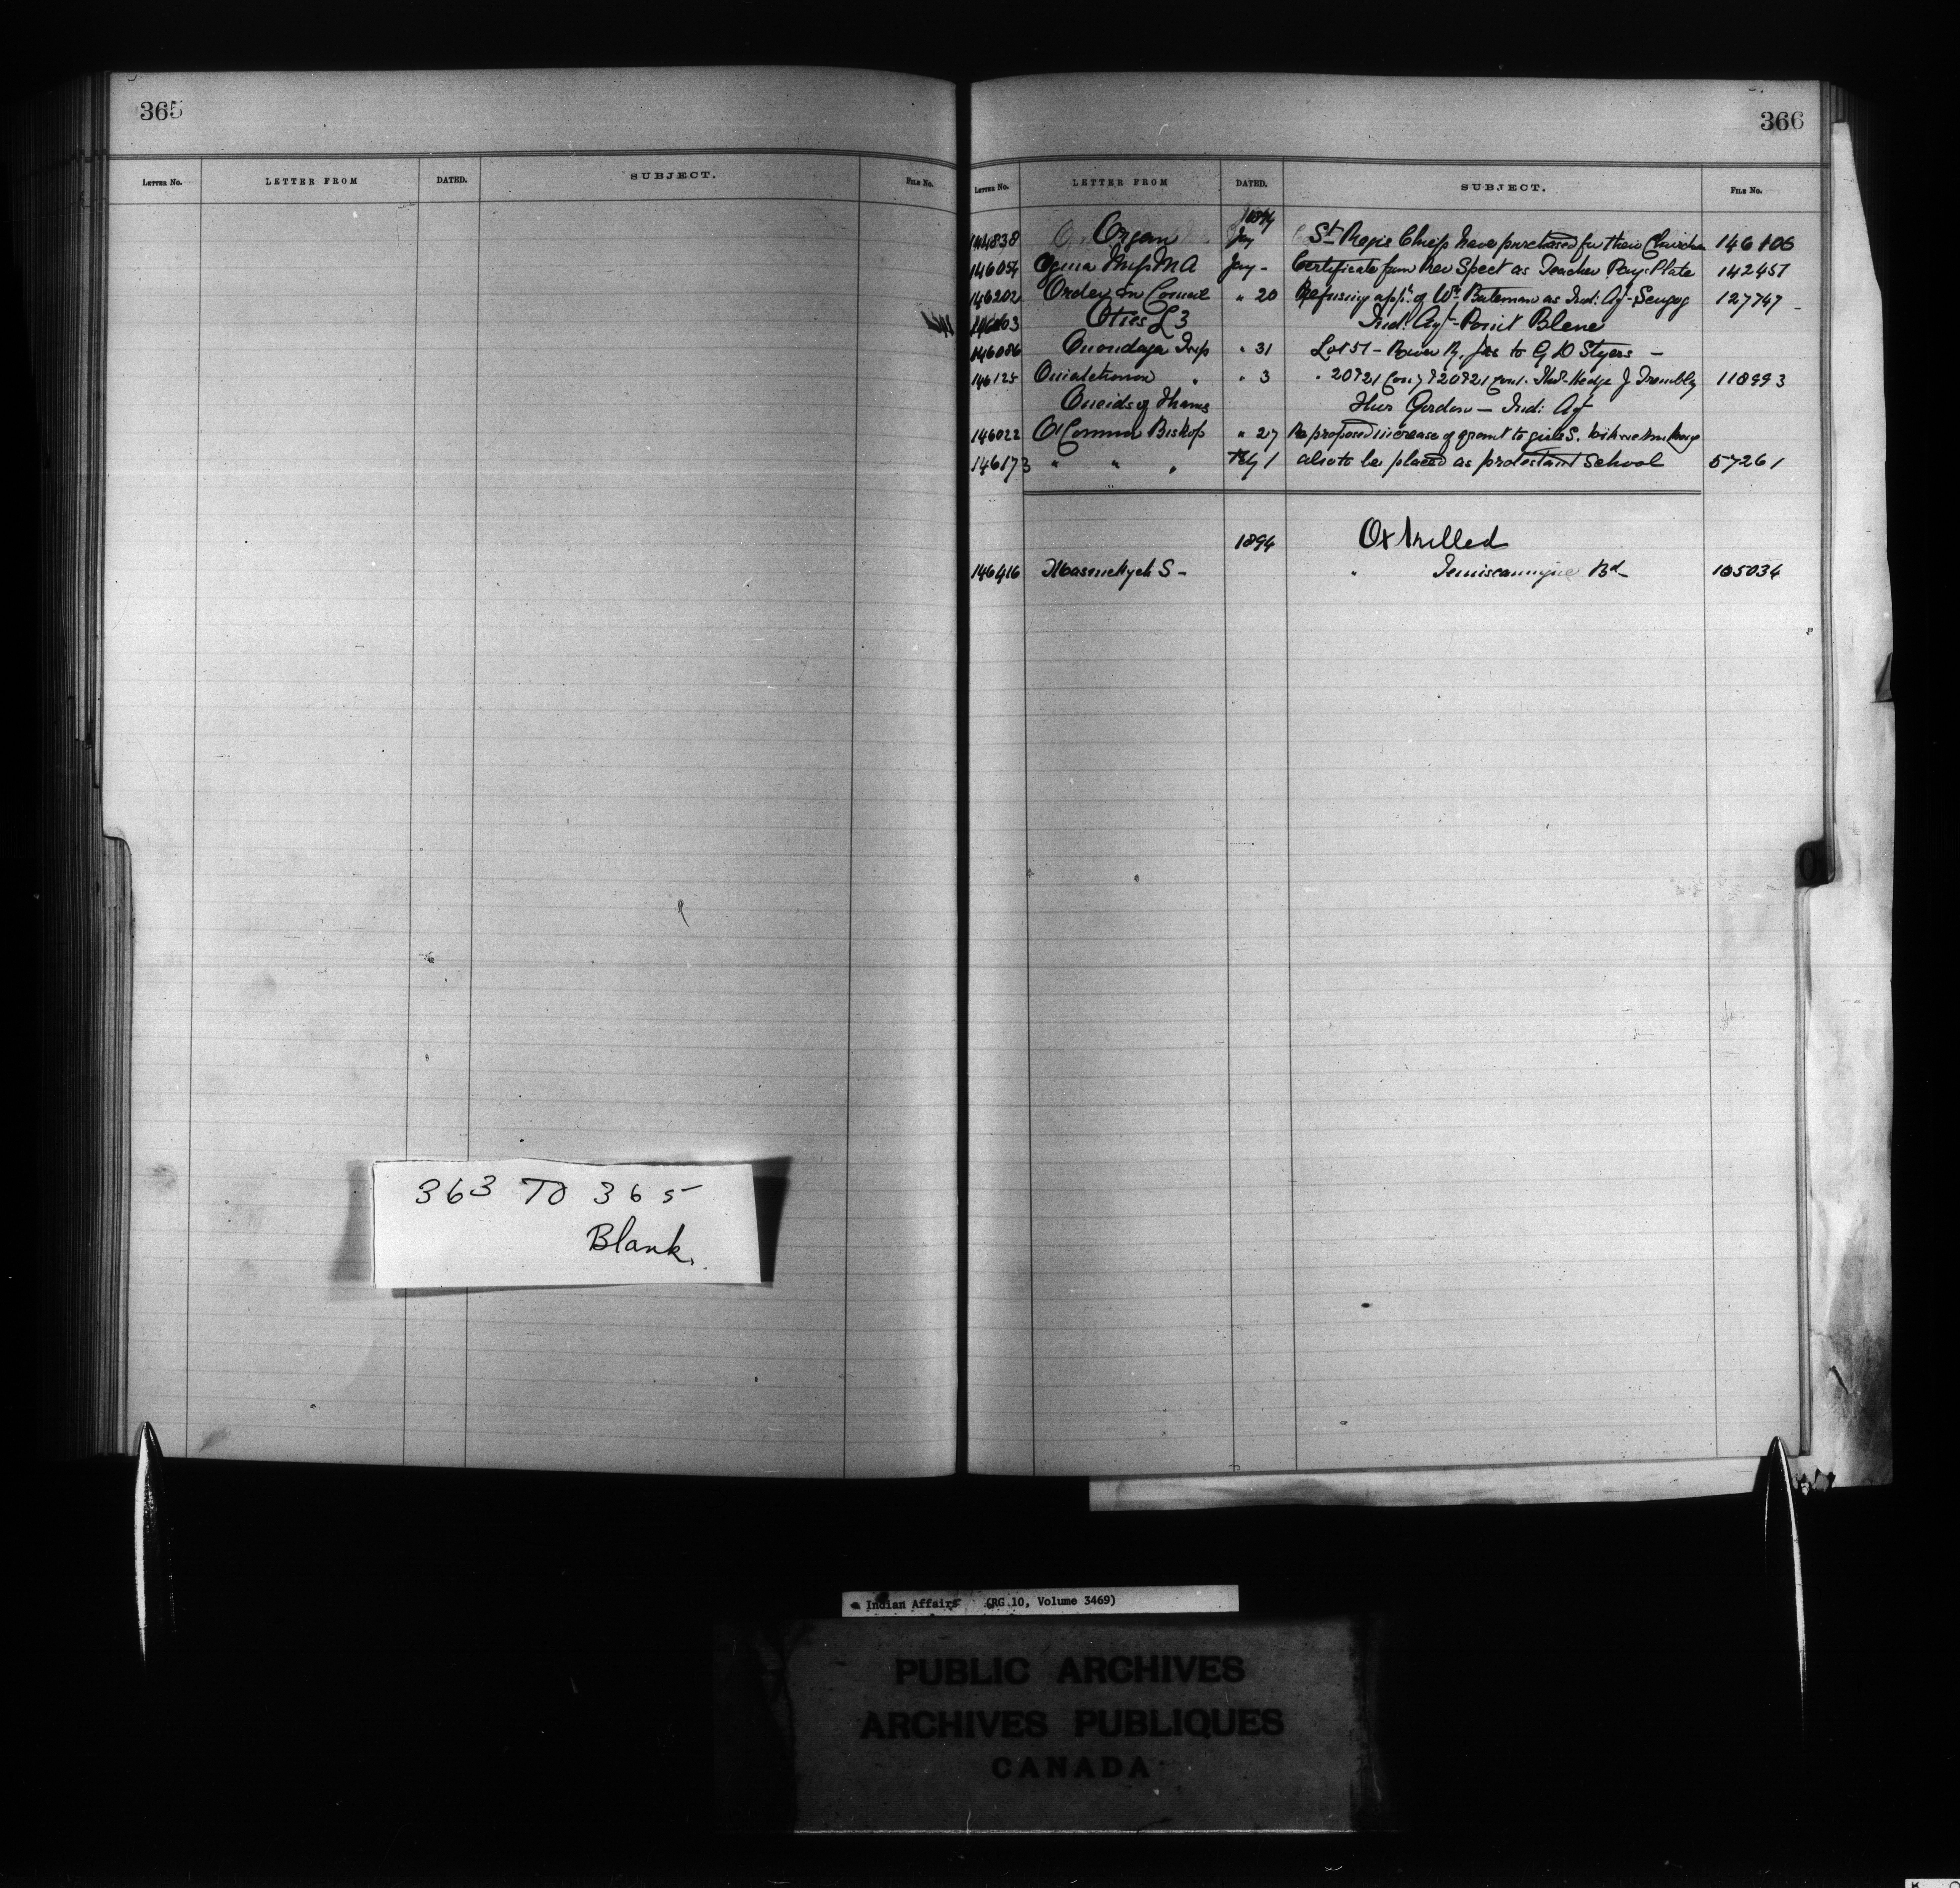 365
LETTER NO. LETTER FROM DATED. SUBJECT. FILE NO.
363 TO 365
Blank.
366
LETTER NO. LETTER FROM DATED. SUBJECT. FILE NO.
1894
144838 Organ Jay St Regis Chiefs have purchased for their Church 146106
146054 Ogima Miss M A Jay - Certificate from Rev Spect as Teacher Pays Plate 142457
146202 Order in Council " 20 Refusing appln of Wm Bateman as Ind: Agt - Scugog 127747
Oties L 3 Ind: Agt - Point Blene
146086 Onondaga Twp " 31 Lot 51 - River R. to G D Styers -
146125 Ouiatchouan " " 3 118993
Oneidas of Thames Gordon - Ind: Agt
146022 O'Connor Bishop " 27 Re proposed increase of grant to girls S.
146173 " " " Feby 1 also to be placed as protestant School 57261
1894 Ox killed
146416 " Temiscamingue Bd 105034
Indian Affairs (RG 10, Volume 3469)
PUBLIC ARCHIVES
ARCHIVES PUBLIQUES
CANADA